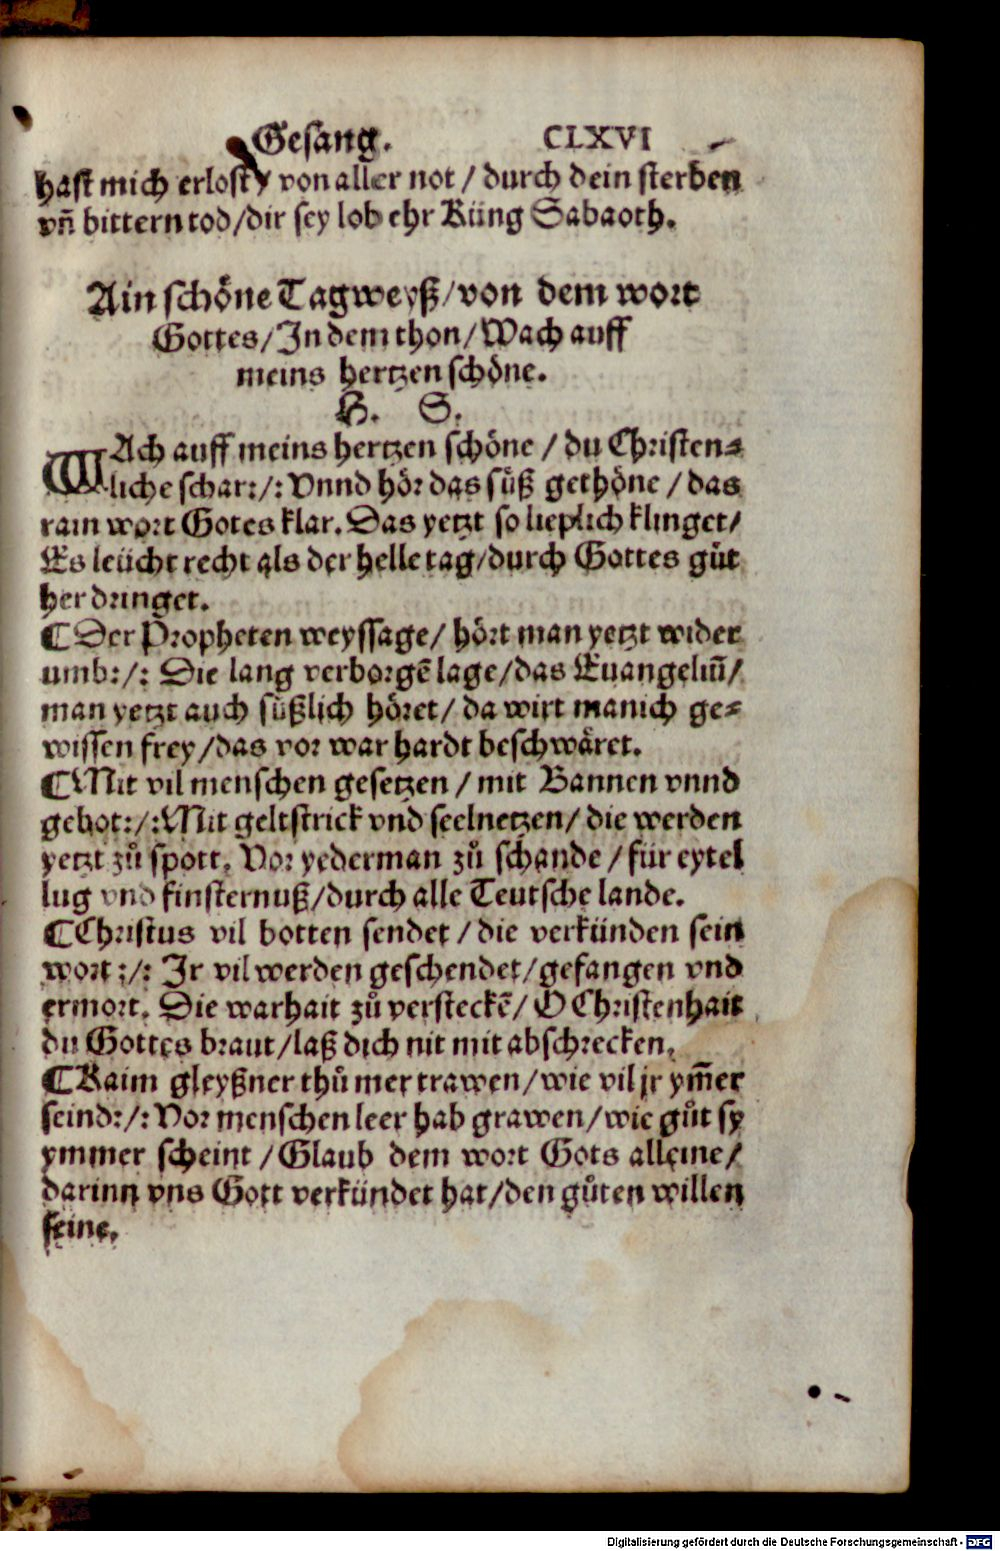 Gesang. CLXVI
hast mich erlost / von aller not / durch dein sterben
vn̄ bittern tod/dir sey lob ehr Küng Sabaoth.
Ain schöne Tagweyß/von dem wort
Gottes/In dem thon/Wach auff
meins hertzen schöne.
H. S.
WAch auff meins hertzen schöne / du Christen⸗
liche schar:/: Vnnd hör das süß gethöne / das
rain wort Gotes klar. Das yetzt so lieplich klinget/
Es leücht recht als der helle tag/durch Gottes guͤt
her dringet.
¶Der Propheten weyssage/ hört man yetzt wider
umb:/: Die lang verborgē lage/das Euangeliū/
man yetzt auch süßlich höret/ da wirt manich ge⸗
wissen frey/das vor war hardt beschwäret.
¶Mit vil menschen gesetzen / mit Bannen vnnd
gebot:/:Mit geltstrick vnd seelnetzen/ die werden
yetzt zuͦ spott. Vor yederman zuͦ schande / für eytel
lug vnd finsternuß/durch alle Teutsche lande.
¶Christus vil botten sendet / die verkünden sein
wort:/: Ir vil werden geschendet/gefangen vnd
ermort. Die warhait zuͦ versteckē/ O Christenhait
du Gottes braut/laß dich nit mit abschrecken.
¶Kaim gleyßner thuͦ mer trawen/wie vil jr ym̄er
seind:/: Vor menschen leer hab grawen/wie guͦt sy
ymmer scheint / Glaub dem wort Gots alleine/
darinn vns Gott verkündet hat/den guͦten willen
seine.
Digitalisierung gefördert durch die Deutsche Forschungsgemeinschaft - DFG